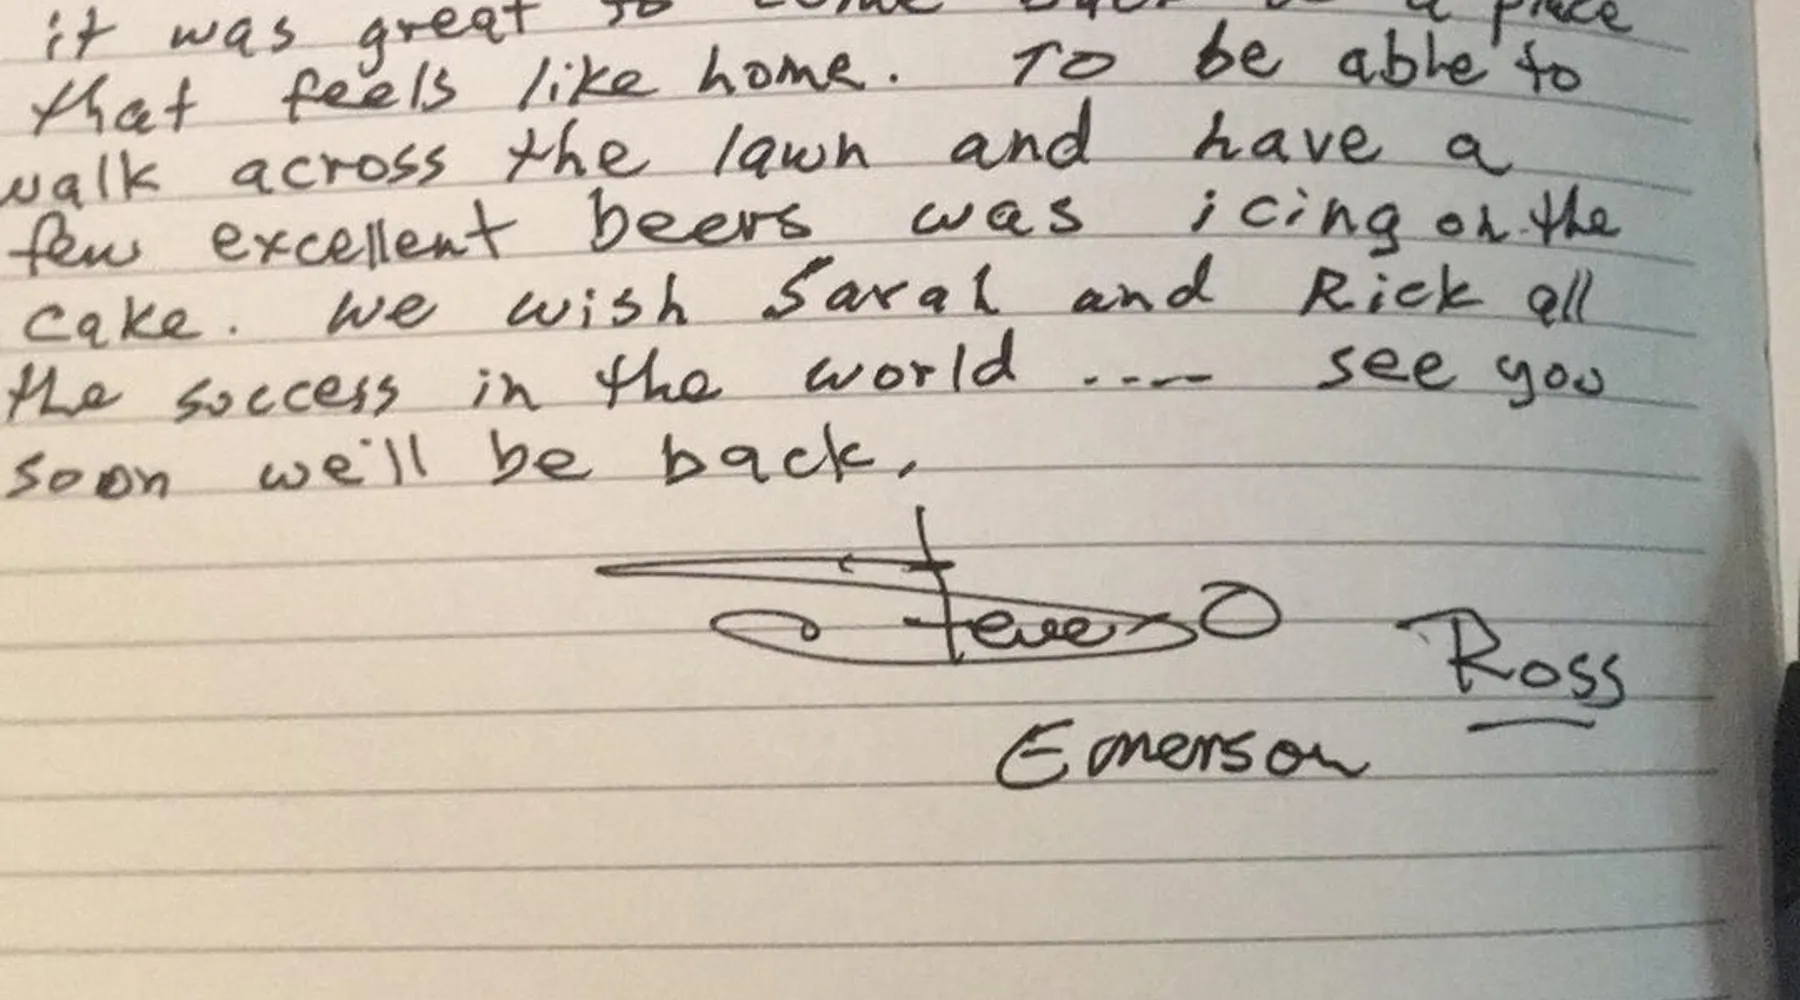 it was great to come back to a place
that feels like home. To be able to
walk across the lawn and have a
few excellent beers was icing on the
cake. We wish Sarah and Rick all
the success in the world .... see you
soon we'll be back.
Steve O
Ross
Emerson